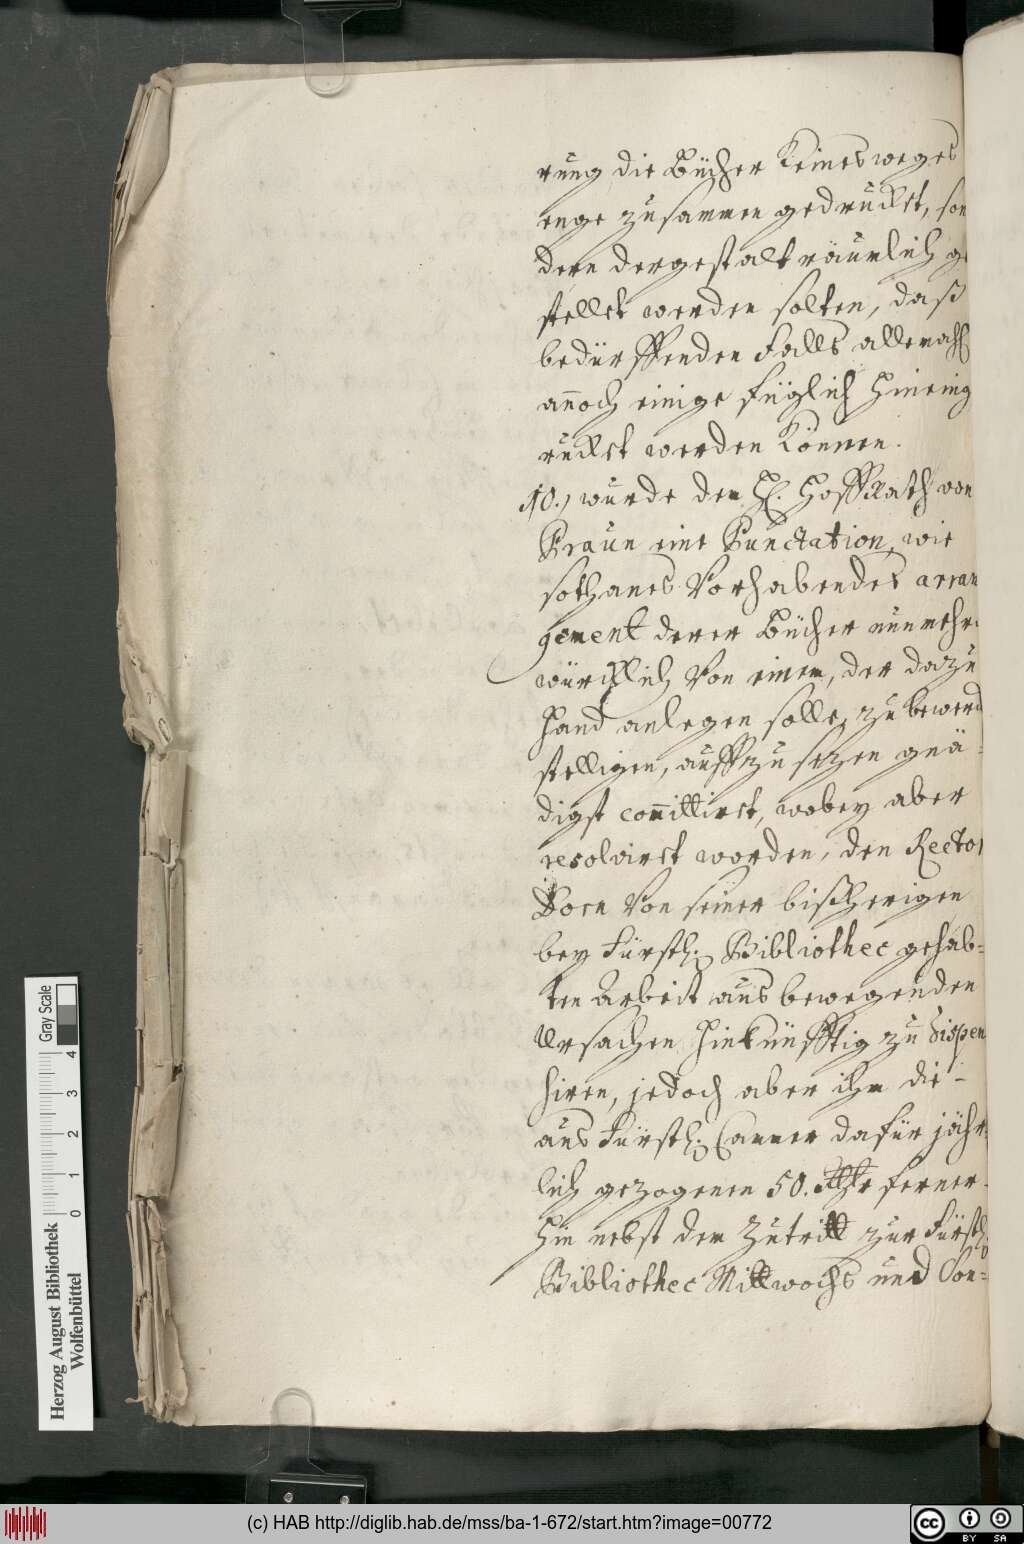 rung die Bücher Keinesweges
enge zusammen gedruckt, son
dern dergestalt räumlich ge
stellet werden solten, daß
bedürffenden Falls allemahl
an̄och einige füglich hineing
rücket werden Können.
10., wurde dem H. Hoff Rath von
Praun eine Punctation, wie
sothanes Vorhabendes arran
gement derer Bücher nunmehro
würcklich Von einem, der dazu
Hand anlegen solle, zu bewerck
stelligen, auffzusezen gnä-
digst com̄ittiret, wobey aber
resolviret worden, den Rector
Dorn Von seiner bißherigen
bey Fürstl. Bibliothec gehab-
ten Arbeit aus bewegenden
Ursachen hinkünfftig zu dispen
siren, jedoch aber ihm die -
aus Fürstl. Cammer dafür jähr-
lich gezogenen 50. Rthlr ferner-
hin nebst dem Zutritt zur Fürstl.
Bibliothec Mittwochs und Son-
Herzog August Bibliothek
Wolfenbüttel
0 1 2 3 4
Gray Scale
(c) HAB http://diglib.hab.de/mss/ba-1-672/start.htm?image=00772
cc BY SA